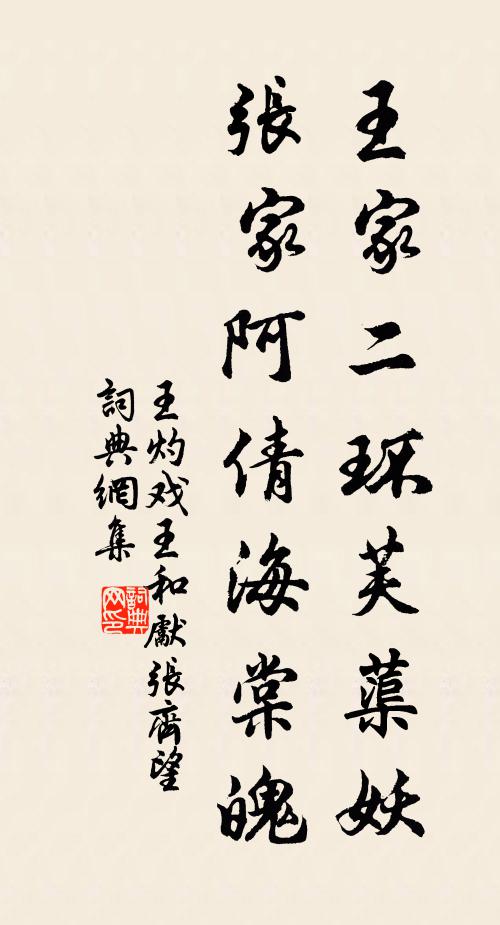 王家二环芙蕖妖
張家阿倩海棠魄
王灼戏王和獻張齊望
詞典網集
詞典网印